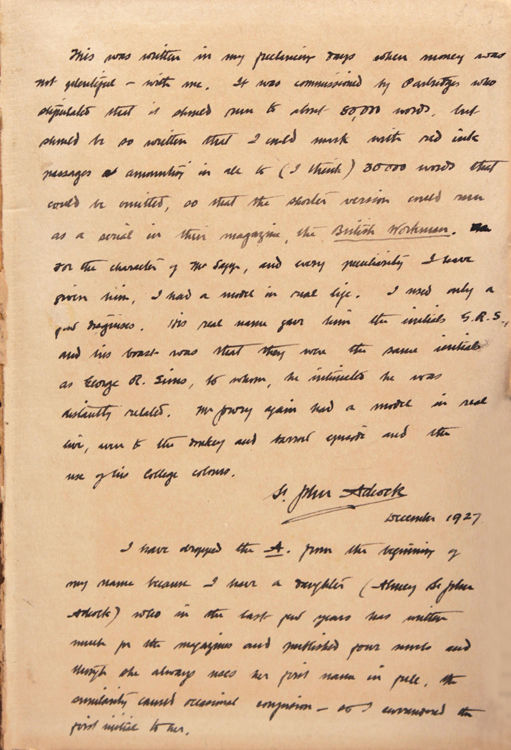 This was written in my freelancing days when money was
not plentiful – with me. It was commissioned by Partridges who
stipulated that it should run to about 80,000 words, but
should be so written that I could mark with red ink
passages amounting in all to (I think) 30000 words that
could be omitted, so that the shorter version could run
as a serial in their magazine, the British Workman.
For the character of Mr, and every peculiarity I have
given him, I had a model in real life. I used only a
few disguises. His real name gave him the initials G.R.S.,
and his boast was that they were the same initials
as George R. Sims, to whom, he intimated he was
distantly related. Mr again had a model in real
live, even to the donkey and barrel episode and the
use of his College colours.
St. John Adcock
December 1927
I have dropped the A. from the beginning of
my name because I have a daughter (Almey St John
Adcock) who in the last few years has written
much for the magazines and published four novels and
though she always uses her first name in full, the
similarity caused occasional confusion – so I surrendered the
first initial to her.